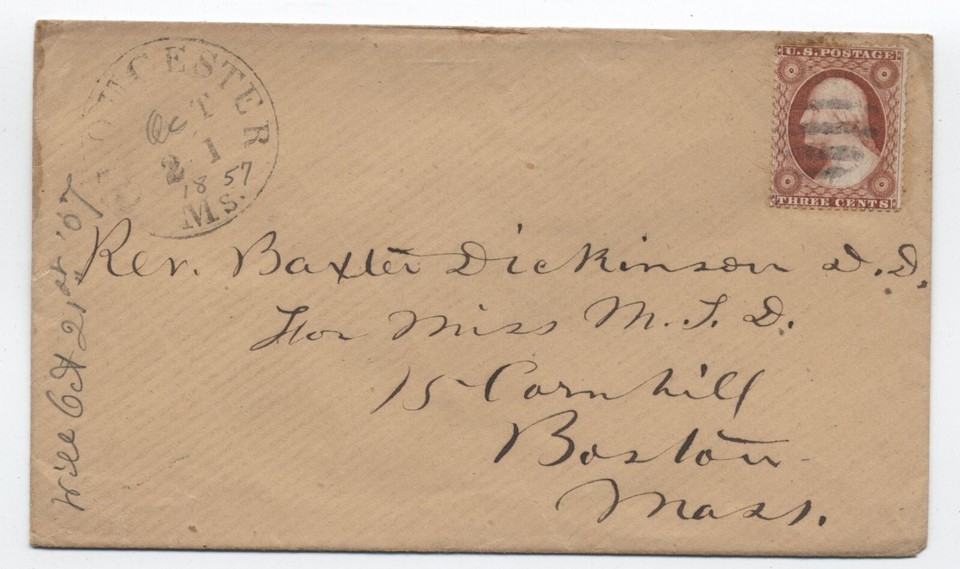 GLOUCESTER
Oct
21
1857
Ms.
U.S. POSTAGE
THREE CENTS
Rev. Baxter Dickinson D.D.
For Miss M. S. D.
15 Cornhill
Boston
Mass.
Will Oct 21st '57